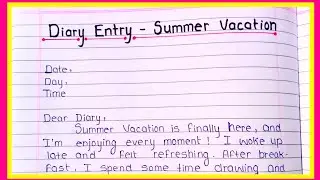 Diary Entry - Summer Vacation
Date,
Day,
Time
Dear Diary,
Summer Vacation is finally here, and
I'm enjoying every moment! I woke up
late and felt refreshing. After break-
fast, I spend some time drawing and